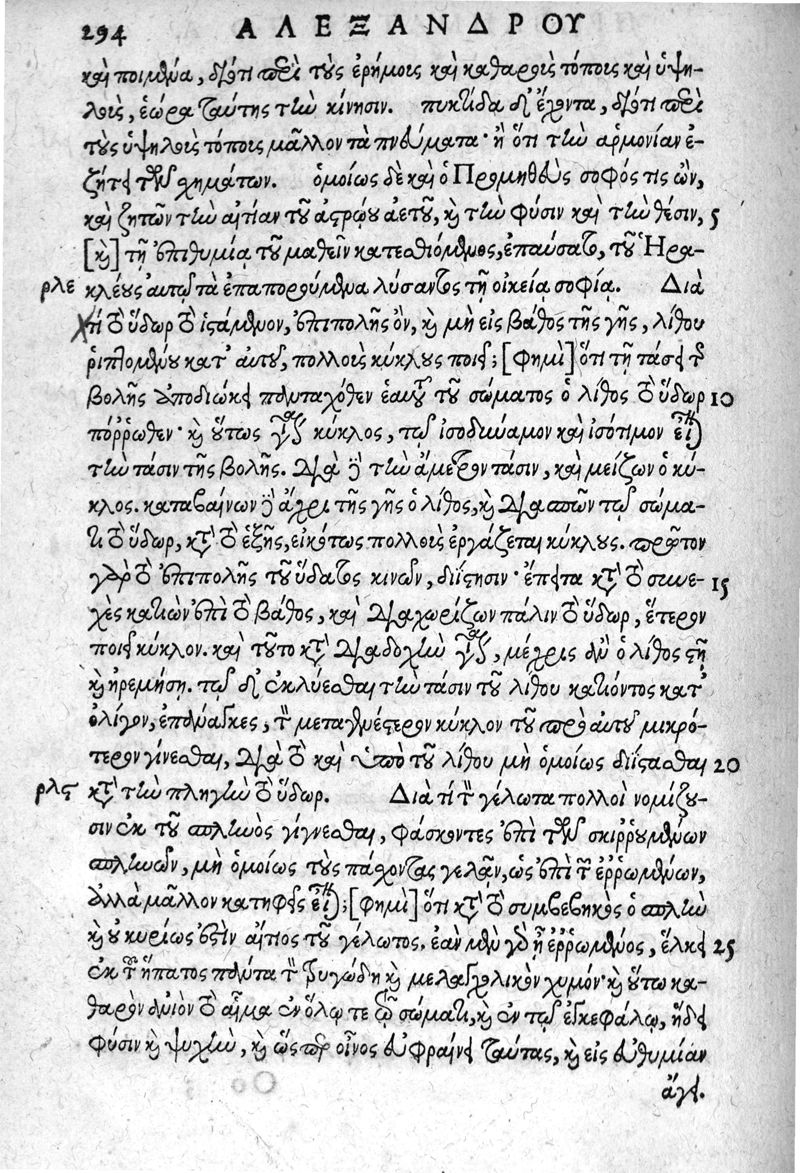 294 ΑΛΕΞΑΝΔΡΟΥ
καὶ ποιμένα, διότι περὶ τοὺς ἐρήμοις καὶ καθαροῖς τόποις καὶ ὑψη-
λοῖς, ἑώρα ταύτης τὴν κίνησιν. πυκτίδα δ' ἔχοντα, διότι περὶ
τοὺς ὑψηλοῖς τόποις μᾶλλον τὰ πνεύματα· ἢ ὅτι τὴν ἁρμονίαν ἐ-
ζήτει τῶν χημάτων. ὁμοίως δὲ καὶ ὁ Προμηθεὺς σοφός τις ὢν,
καὶ ζητῶν τὴν αἰτίαν τοῦ ἀστρῴου ἀετοῦ, καὶ τὴν φύσιν καὶ τὴν θέσιν, 5
[καὶ] τῇ ἐπιθυμίᾳ τοῦ μαθεῖν κατεσθιόμενος, ἐπαύσατο, τοῦ Ἡρα-
ρλε κλέους αὐτῷ τὰ ἐπαπορούμενα λύσαντος τῇ οἰκείᾳ σοφίᾳ. Διὰ
τί τὸ ὕδωρ τὸ ἱστάμενον, ἐπιπολῆς ὂν, καὶ μὴ εἰς βάθος τῆς γῆς, λίθου
ῥιπτομένου κατ' αὐτοῦ, πολλοὺς κύκλους ποιεῖ; [Φημὶ] ὅτι τῇ τάσει τῆς
βολῆς ἀποδιώκει πανταχόθεν ἑαυτοῦ τοῦ σώματος ὁ λίθος τὸ ὕδωρ 10
πόῤῥωθεν· καὶ οὕτως γίνεται κύκλος, τῷ ἰσοδυνάμον καὶ ἰσότιμον εἶναι
τὴν τάσιν τῆς βολῆς. Διὰ γὰρ τὴν ἄμετρον τάσιν, καὶ μείζων ὁ κύ-
κλος. καταβαίνων γὰρ ἄχρι τῆς γῆς ὁ λίθος, καὶ διασπῶν τῷ σώμα-
τι τὸ ὕδωρ, κατὰ τὸ ἑξῆς, εἰκότως πολλοὺς ἐργάζεται κύκλους. πρῶτον
γὰρ τὸ ἐπιπολῆς τοῦ ὕδατος κινῶν, διΐστησιν· ἔπειτα κατὰ τὸ συνε- 15
χὲς κατιὼν ἐπὶ τὸ βάθος, καὶ διαχωρίζων πάλιν τὸ ὕδωρ, ἕτερον
ποιεῖ κύκλον. καὶ τοῦτο κατὰ διαδοχὴν γίνεται, μέχρις οὗ ὁ λίθος στῇ
καὶ ἠρεμήσῃ. τῷ δ' ἐκλύεσθαι τὴν τάσιν τοῦ λίθου κατιόντος κατ'
ὀλίγον, ἐπάναγκες, τὸν μεταγενέστερον κύκλον τοῦ πρὸ αὐτοῦ μικρό-
τερον γίνεσθαι, διὰ τὸ καὶ ὑπὸ τοῦ λίθου μὴ ὁμοίως διΐστασθαι 20
ρλϛ κατὰ τὴν πληγὴν τὸ ὕδωρ. Διὰ τί τὸν γέλωτα πολλοὶ νομίζου-
σιν ἐκ τοῦ σπληνὸς γίγνεσθαι, φάσκοντες ἐπὶ τῶν σκιῤῥουμένων
σπληνῶν, μὴ ὁμοίως τοὺς πάσχοντας γελᾶν, ὡς ἐπὶ τῶν ἐῤῥωμένων,
ἀλλὰ μᾶλλον κατηφεῖς εἶναι; [Φημὶ] ὅτι κατὰ τὸ συμβεβηκὸς ὁ σπλὴν
καὶ οὐ κυρίως ἐστὶν αἴτιος τοῦ γέλωτος. ἐὰν μὲν γὰρ ᾖ ἐῤῥωμένος, ἕλκει 25
ἐκ τοῦ ἥπατος πάντα τὸν τρυγώδη καὶ μελαγχολικὸν χυμόν· καὶ οὕτω κα-
θαρὸν ἀνιὸν τὸ αἷμα ἐν ὅλῳ τε τῷ σώματι, καὶ ἐν τῷ ἐγκεφάλῳ, ἥδει
φύσιν καὶ ψυχὴν, καὶ ὥσπερ οἶνος εὐφραίνει ταύτας, καὶ εἰς εὐθυμίαν
ἄγει.